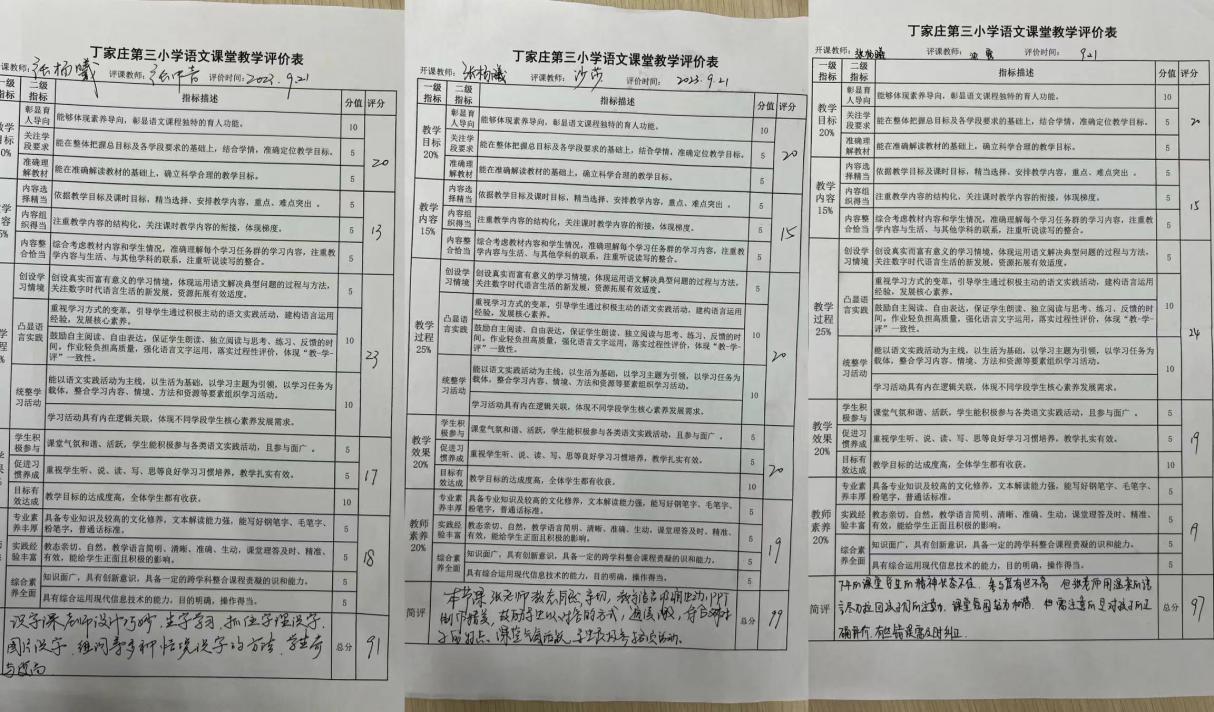 丁家庄第三小学语文课堂教学评价表
课教师: 张杨曦 评课教师: 评价时间: 2023.9.21
一级指标 二级指标 指标描述 分值 评分
彰显育人导向 能够体现素养导向，彰显语文课程独特的育人功能。 10
关注学段要求 能在整体把握总目标及各学段要求的基础上，结合学情，准确定位教学目标。 5 20
准确理解教材 能在准确解读教材的基础上，确立科学合理的教学目标。 5
内容选择精当 依据教学目标及课时目标，精当选择、安排教学内容，重点、难点突出 。 5
内容组织得当 注重教学内容的结构化，关注课时教学内容的衔接，体现梯度。 5 13
内容整合恰当 综合考虑教材内容和学生情况，准确理解每个学习任务群的学习内容，注重教学内容与生活、与其他学科的联系，注重听说读写的整合。 5
创设学习情境 创设真实而富有意义的学习情境，体现运用语文解决典型问题的过程与方法，关注数字时代语言生活的新发展，资源拓展有效适度。 5
凸显语言实践 重视学习方式的变革，引导学生通过积极主动的语文实践活动，建构语言运用经验，发展核心素养。 10
鼓励自主阅读、自由表达，保证学生朗读、独立阅读与思考、练习、反馈的时间，作业轻负担高质量，强化语言文字运用，落实过程性评价，体现“教-学-评”一致性。 23
统整学习活动 能以语文实践活动为主线，以生活为基础，以学习主题为引领，以学习任务为载体，整合学习内容、情境、方法和资源等要素组织学习活动。 10
学习活动具有内在逻辑关联，体现不同学段学生核心素养发展需求。
学生积极参与 课堂气氛和谐、活跃，学生能积极参与各类语文实践活动，且参与面广 。 5
促进习惯养成 重视学生听、说、读、写、思等良好学习习惯培养，教学扎实有效。 5 17
目标有效达成 教学目标的达成度高，全体学生都有收获。 10
专业素养丰厚 具备专业知识及较高的文化修养，文本解读能力强，能写好钢笔字、毛笔字、粉笔字，普通话标准。 5
实践经验丰富 教态亲切、自然，教学语言简明、清晰、准确、生动，课堂理答及时、精准、有效，能给学生正面且积极的影响。 5 18
综合素养全面 知识面广，具有创新意识，具备一定的跨学科整合课程资凝的识和能力。 5
具有综合运用现代信息技术的能力，目的明确，操作得当。 5
识字课，老师设计巧妙，生字学习，抓住字理识字，
图片识字、组词等多种 识字的方法，学生
总分 91
丁家庄第三小学语文课堂教学评价表
开课教师: 张杨曦 评课教师: 沙莎 评价时间: 2023.9.21
一级指标 二级指标 指标描述 分值 评分
教学目标20% 彰显育人导向 能够体现素养导向，彰显语文课程独特的育人功能。 10
关注学段要求 能在整体把握总目标及各学段要求的基础上，结合学情，准确定位教学目标。 5 20
准确理解教材 能在准确解读教材的基础上，确立科学合理的教学目标。 5
教学内容15% 内容选择精当 依据教学目标及课时目标，精当选择、安排教学内容，重点、难点突出 。 5
内容组织得当 注重教学内容的结构化，关注课时教学内容的衔接，体现梯度。 5 15
内容整合恰当 综合考虑教材内容和学生情况，准确理解每个学习任务群的学习内容，注重教学内容与生活、与其他学科的联系，注重听说读写的整合。 5
教学过程25% 创设学习情境 创设真实而富有意义的学习情境，体现运用语文解决典型问题的过程与方法，关注数字时代语言生活的新发展，资源拓展有效适度。 5
凸显语言实践 重视学习方式的变革，引导学生通过积极主动的语文实践活动，建构语言运用经验，发展核心素养。 10
鼓励自主阅读、自由表达，保证学生朗读、独立阅读与思考、练习、反馈的时间，作业轻负担高质量，强化语言文字运用，落实过程性评价，体现“教-学-评”一致性。 20
统整学习活动 能以语文实践活动为主线，以生活为基础，以学习主题为引领，以学习任务为载体，整合学习内容、情境、方法和资源等要素组织学习活动。 10
学习活动具有内在逻辑关联，体现不同学段学生核心素养发展需求。
教学效果20% 学生积极参与 课堂气氛和谐、活跃，学生能积极参与各类语文实践活动，且参与面广 。 5
促进习惯养成 重视学生听、说、读、写、思等良好学习习惯培养，教学扎实有效。 5 20
目标有效达成 教学目标的达成度高，全体学生都有收获。 10
教师素养20% 专业素养丰厚 具备专业知识及较高的文化修养，文本解读能力强，能写好钢笔字、毛笔字、粉笔字，普通话标准。 5
实践经验丰富 教态亲切、自然，教学语言简明、清晰、准确、生动，课堂理答及时、精准、有效，能给学生正面且积极的影响。 5 19
综合素养全面 知识面广，具有创新意识，具备一定的跨学科整合课程资凝的识和能力。 5
具有综合运用现代信息技术的能力，目的明确，操作得当。 5
简评 本节课张老师教态自然、亲切，教学语言 生动，PPT
制作精美，鼓励学生以 的方式， ，符合
子 特点，课堂气氛活跃，学生 活动。
总分 99
丁家庄第三小学语文课堂教学评价表
开课教师: 张杨曦 评课教师: 评价时间: 9.21
一级指标 二级指标 指标描述 分值 评分
教学目标20% 彰显育人导向 能够体现素养导向，彰显语文课程独特的育人功能。 10
关注学段要求 能在整体把握总目标及各学段要求的基础上，结合学情，准确定位教学目标。 5 20
准确理解教材 能在准确解读教材的基础上，确立科学合理的教学目标。 5
教学内容15% 内容选择精当 依据教学目标及课时目标，精当选择、安排教学内容，重点、难点突出 。 5
内容组织得当 注重教学内容的结构化，关注课时教学内容的衔接，体现梯度。 5 15
内容整合恰当 综合考虑教材内容和学生情况，准确理解每个学习任务群的学习内容，注重教学内容与生活、与其他学科的联系，注重听说读写的整合。 5
教学过程25% 创设学习情境 创设真实而富有意义的学习情境，体现运用语文解决典型问题的过程与方法，关注数字时代语言生活的新发展，资源拓展有效适度。 5
凸显语言实践 重视学习方式的变革，引导学生通过积极主动的语文实践活动，建构语言运用经验，发展核心素养。 10
鼓励自主阅读、自由表达，保证学生朗读、独立阅读与思考、练习、反馈的时间，作业轻负担高质量，强化语言文字运用，落实过程性评价，体现“教-学-评”一致性。 24
统整学习活动 能以语文实践活动为主线，以生活为基础，以学习主题为引领，以学习任务为载体，整合学习内容、情境、方法和资源等要素组织学习活动。 10
学习活动具有内在逻辑关联，体现不同学段学生核心素养发展需求。
教学效果20% 学生积极参与 课堂气氛和谐、活跃，学生能积极参与各类语文实践活动，且参与面广 。 5
促进习惯养成 重视学生听、说、读、写、思等良好学习习惯培养，教学扎实有效。 5 19
目标有效达成 教学目标的达成度高，全体学生都有收获。 10
教师素养20% 专业素养丰厚 具备专业知识及较高的文化修养，文本解读能力强，能写好钢笔字、毛笔字、粉笔字，普通话标准。 5
实践经验丰富 教态亲切、自然，教学语言简明、清晰、准确、生动，课堂理答及时、精准、有效，能给学生正面且积极的影响。 5 19
综合素养全面 知识面广，具有创新意识，具备一定的跨学科整合课程资凝的识和能力。 5
具有综合运用现代信息技术的能力，目的明确，操作得当。 5
简评 下午的课堂学生的精神状态不佳，参与其有些不高，但张老师用温柔的语
言尽力拉回孩子们的注意力，课堂氛围较为和谐，但需注意的是对孩子的正
确评价，有些错误需及时纠正。
总分 97